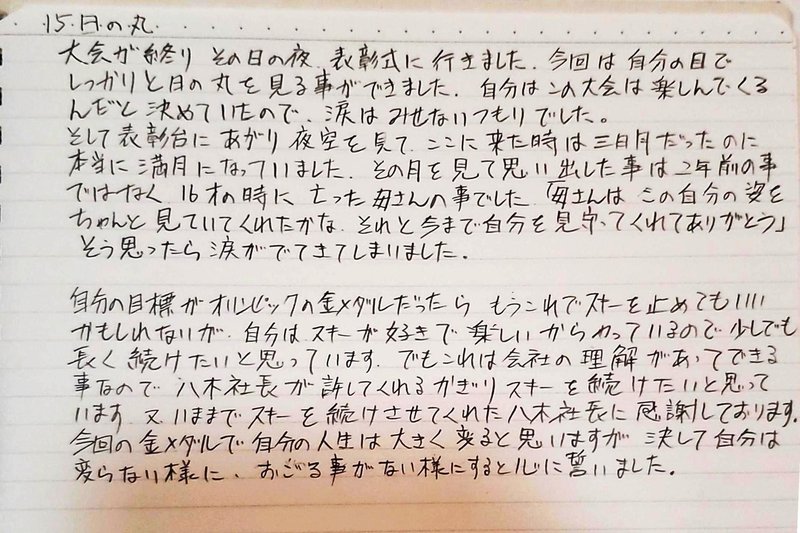 15.日の丸
大会が終り その日の夜、表彰式に行きました。今回は自分の目で
しっかりと日の丸を見る事ができました。自分はこの大会は楽しんでくる
んだと決めていたので、涙はみせないつもりでした。
そして表彰台にあがり夜空を見て、ここに来た時は三日月だったのに
本当に満月になっていました。その月を見て思い出した事は2年前の事
ではなく、16才の時に亡った母さんの事でした。「母さんは この自分の姿を
ちゃんと見ていてくれたかな、それと今まで自分を見守ってくれてありがとう」
そう思ったら涙がでてきてしまいました。
自分の目標がオリンピックの金メダルだったら もうこれでスキーを止めてもいい
かもしれないが、自分はスキーが好きで楽しいからやっているので少しでも
長く続けたいと思っています。でもこれは会社の理解があってできる
事なので 八木社長が許してくれるかぎりスキーを続けたいと思って
います。又、いままでスキーを続けさせてくれた八木社長に感謝しております。
今回の金メダルで自分の人生は大きく変ると思いますが、決して自分は
変らない様に、おごる事がない様にすると心に誓いました。